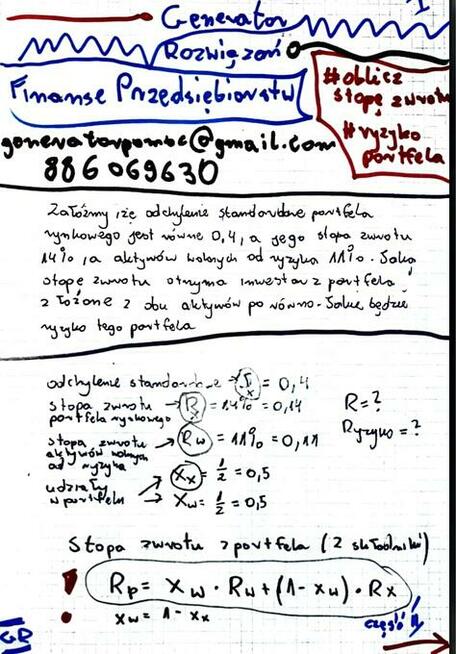 Generator
Rozwiązań
Finanse Przedsiębiorstw
#oblicz
stopę zwrotu
#ryzyko
portfela
generatorpomoc@gmail.com
886 069630
Załóżmy, że odchylenie standardowe portfela
rynkowego jest równe 0,4, a jego stopa zwrotu
14%, a aktywów wolnych od ryzyka 11%. Jaką
stopę zwrotu otrzyma inwestor z portfela
złożone z obu aktywów po równo. Jakie będzie
ryzyko tego portfela
odchylenie standardowe → = 0,4
stopa zwrotu portfela rynkowego → Rx = 14% = 0,14
R = ?
stopa zwrotu aktywów wolnych od ryzyka → Rw = 11% = 0,11
Ryzyko = ?
udziały w portfelu → Xx = 1/2 = 0,5
→ Xw = 1/2 = 0,5
Stopa zwrotu z portfela (2 składniki)
! Rp = Xw · Rw + (1 - Xw) · Rx
Xw = 1 - Xx
część
GR